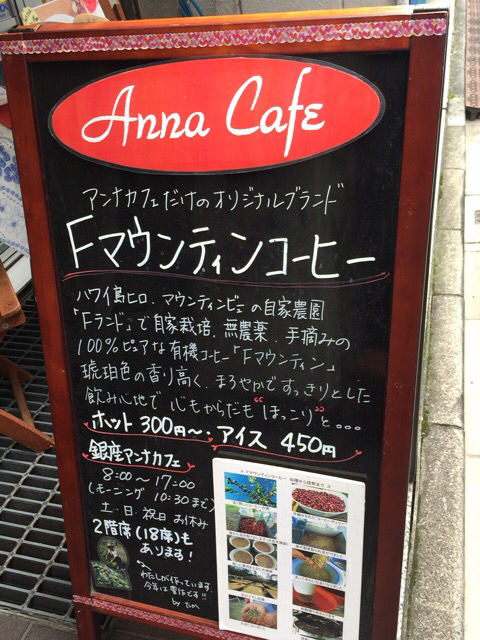 Anna Cafe
アンナカフェだけのオリジナルブランド
Fマウンティンコーヒー
ハワイ島ヒロ.マウンティンビューの自家農園
「Fランド」で自家栽培.無農薬.手摘みの
100%ピュアな有機コーヒー「Fマウンティン」
琥珀色の香り高く.まろやかですっきりとした
飲み心地で心もからだも"ほっこり"と。。。
ホット300円〜.アイス450円
銀座アンナカフェ
8:00〜17:00
(モーニング10:30まで)
土・日・祝日お休み
2階席(18席)も
あります!
わたしが作っています
今年は豊作です!!
by
Fマウンティンコーヒー